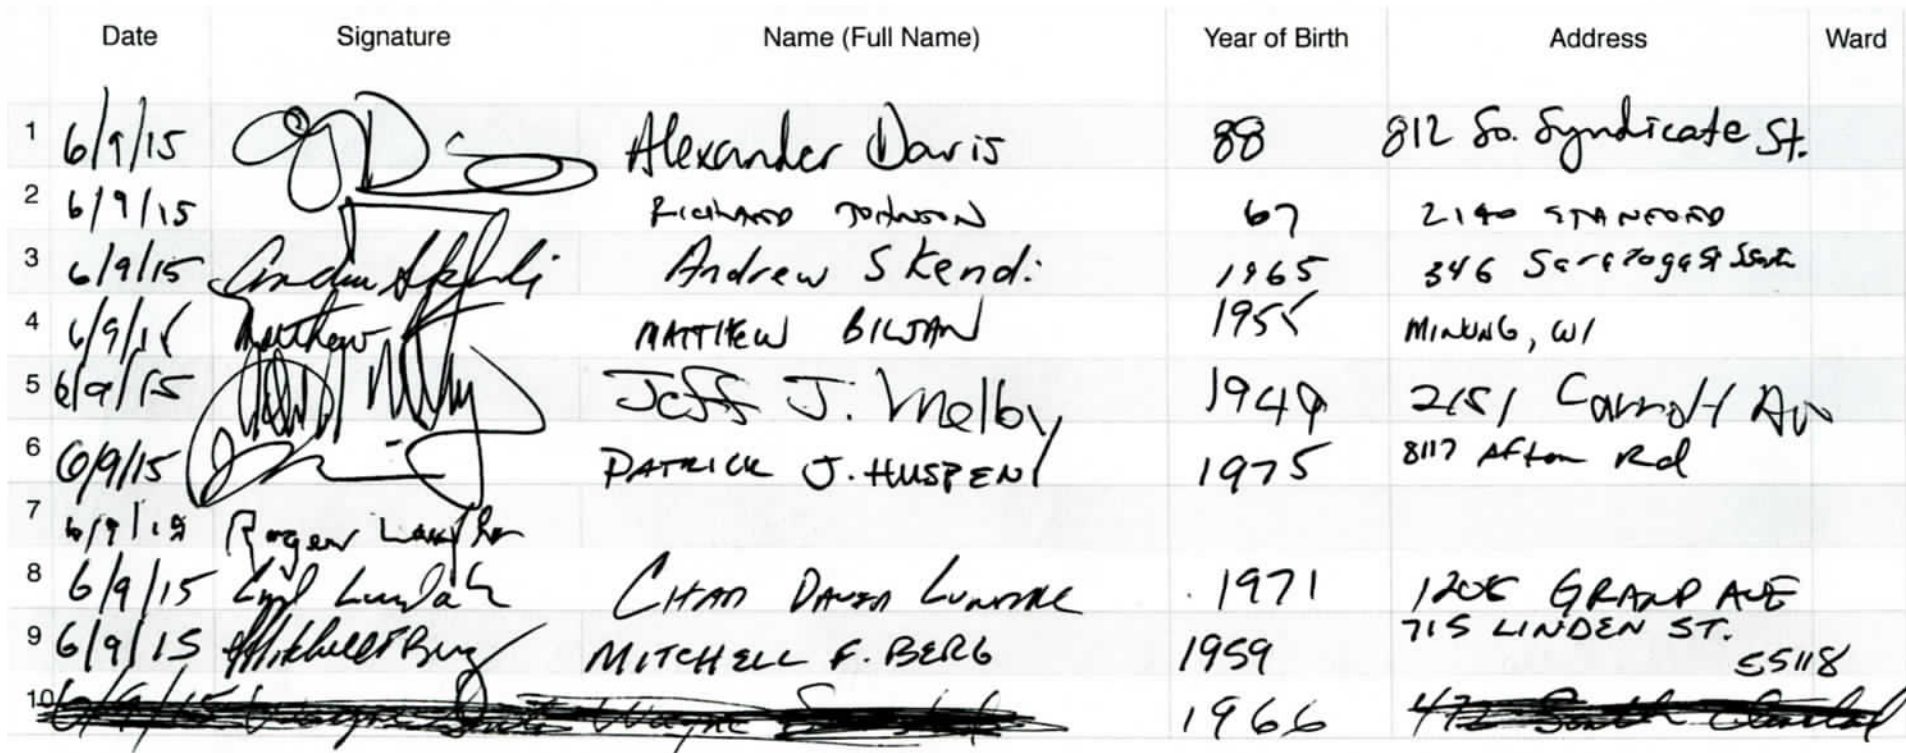 Date Signature Name (Full Name) Year of Birth Address Ward
1 6/9/15 Alexander Davis 88 812 So. Syndicate St.
2 6/9/15 RICHARD JOHNSON 67 2140 STANFORD
3 6/9/15 Andrew Skendi 1965 346 Saratoga St South
4 6/9/15 Matthew MATTHEW 1955 , WI
5 6/9/15 Jeff J. Melby 1949 2151 Carroll Av
6 6/9/15 PATRICK J. HUSPENI 1975 8117 Afton Rd
7 6/9/15 Roger
8 6/9/15 CHAD DAVID 1971 1205 GRAND AVE
9 6/9/15 Mitchell F Berg MITCHELL F. BERG 1959 715 LINDEN ST. 55118
10 6/9/15 Wayne 1966